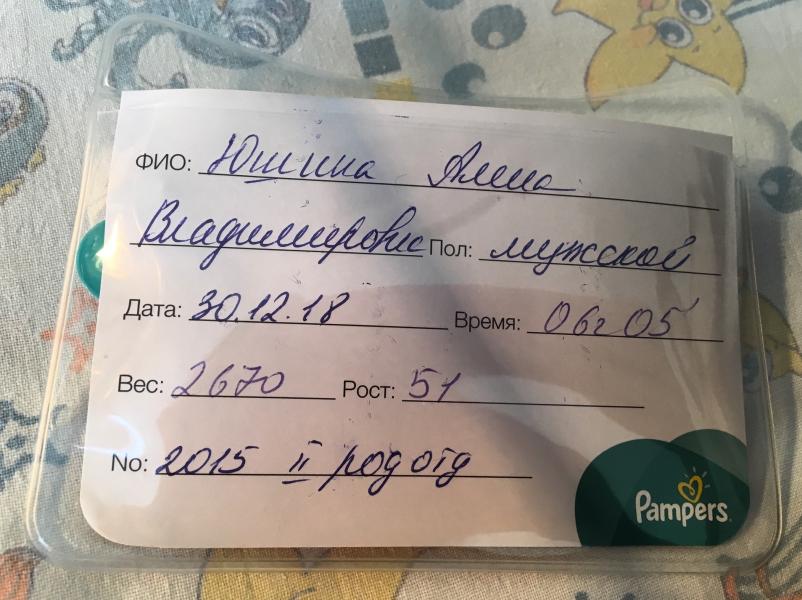 ФИО: Юшина Алина
Владимировна Пол: мужской
Дата: 30.12.18 Время: 06ч 05'
Вес: 2670 Рост: 51
No: 2015 II род отд
Pampers